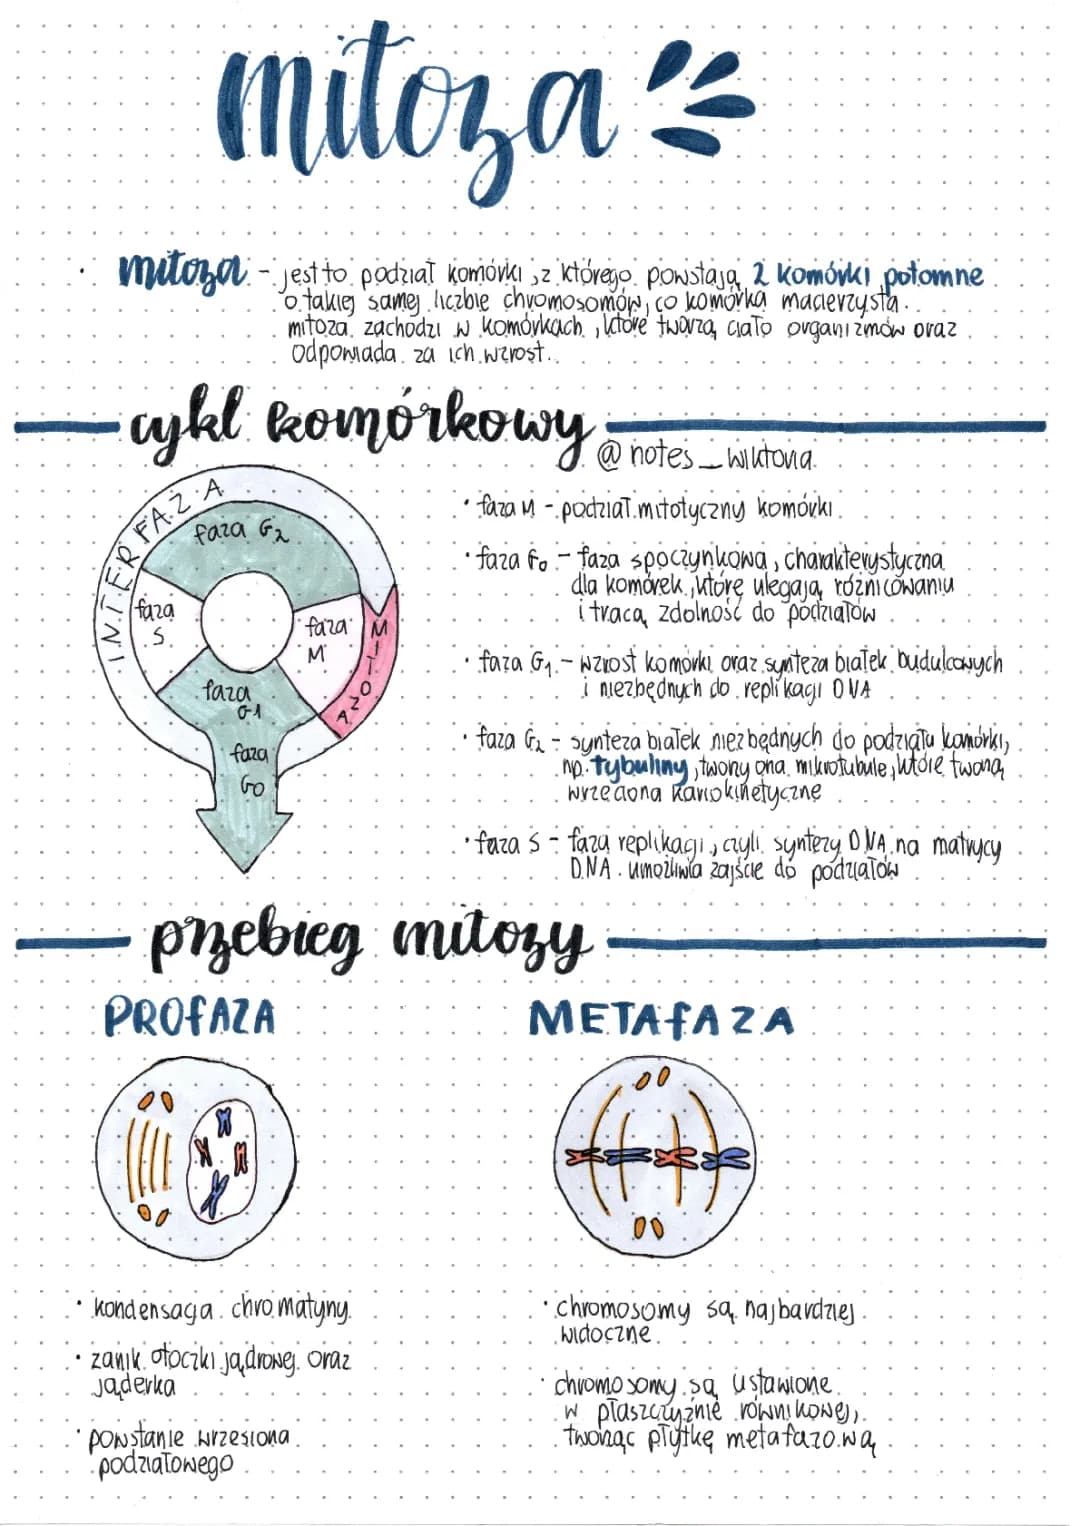 mitoza
mitoza - jest to podział komórki, z którego powstają 2 komórki potomne
o takiej samej liczbie chromosomów, co komórka macierzysta.
mitoza zachodzi w komórkach, które tworzą ciało organizmów oraz
odpowiada za ich wzrost.
cykl komórkowy
@notes_wiktoria
INTERFAZA
faza G2
faza
S
faza
M
MITOZA
faza
G1
faza
G0
• faza M - podział mitotyczny komórki
• faza G0 - faza spoczynkowa, charakterystyczna
dla komórek, które ulegają różnicowaniu
i tracą zdolność do podziałów
• faza G1 - wzrost komórki oraz synteza białek budulcowych
i niezbędnych do replikacji DNA
• faza G2 - synteza białek niezbędnych do podziału komórki,
np. tybuliny, tworzy ona mikrotubule, które tworzą
wrzeciona kariokinetyczne
• faza S - faza replikacji, czyli syntezy DNA na matrycy
DNA. umożliwia zajście do podziałów
przebieg mitozy
PROFAZA
• kondensacja chromatyny
• zanik otoczki jądrowej oraz
jąderka
• powstanie wrzesiona
podziałowego
METAFAZA
• chromosomy są najbardziej
widoczne
• chromosomy są ustawione
w płaszczyźnie równikowej,
tworząc płytkę metafazową